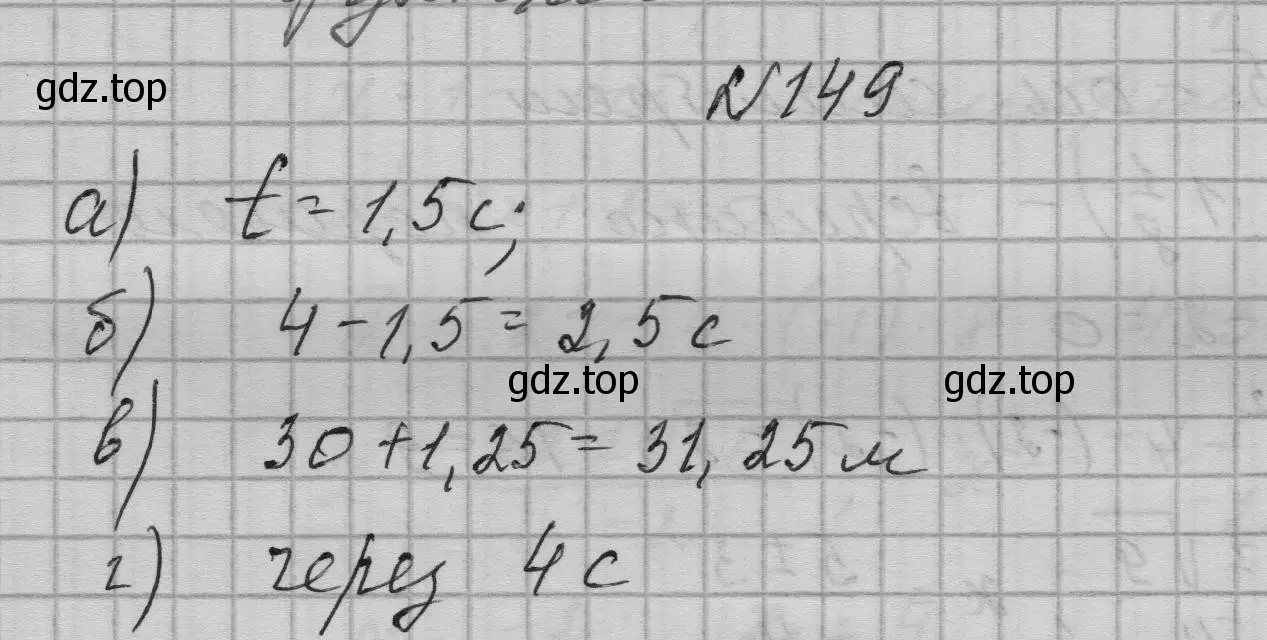 gdz.top
№149
а) t = 1,5 с;
б) 4 - 1,5 = 2,5 с
gdz.top gdz.top
в) 30 + 1,25 = 31,25 м
г) через 4 с